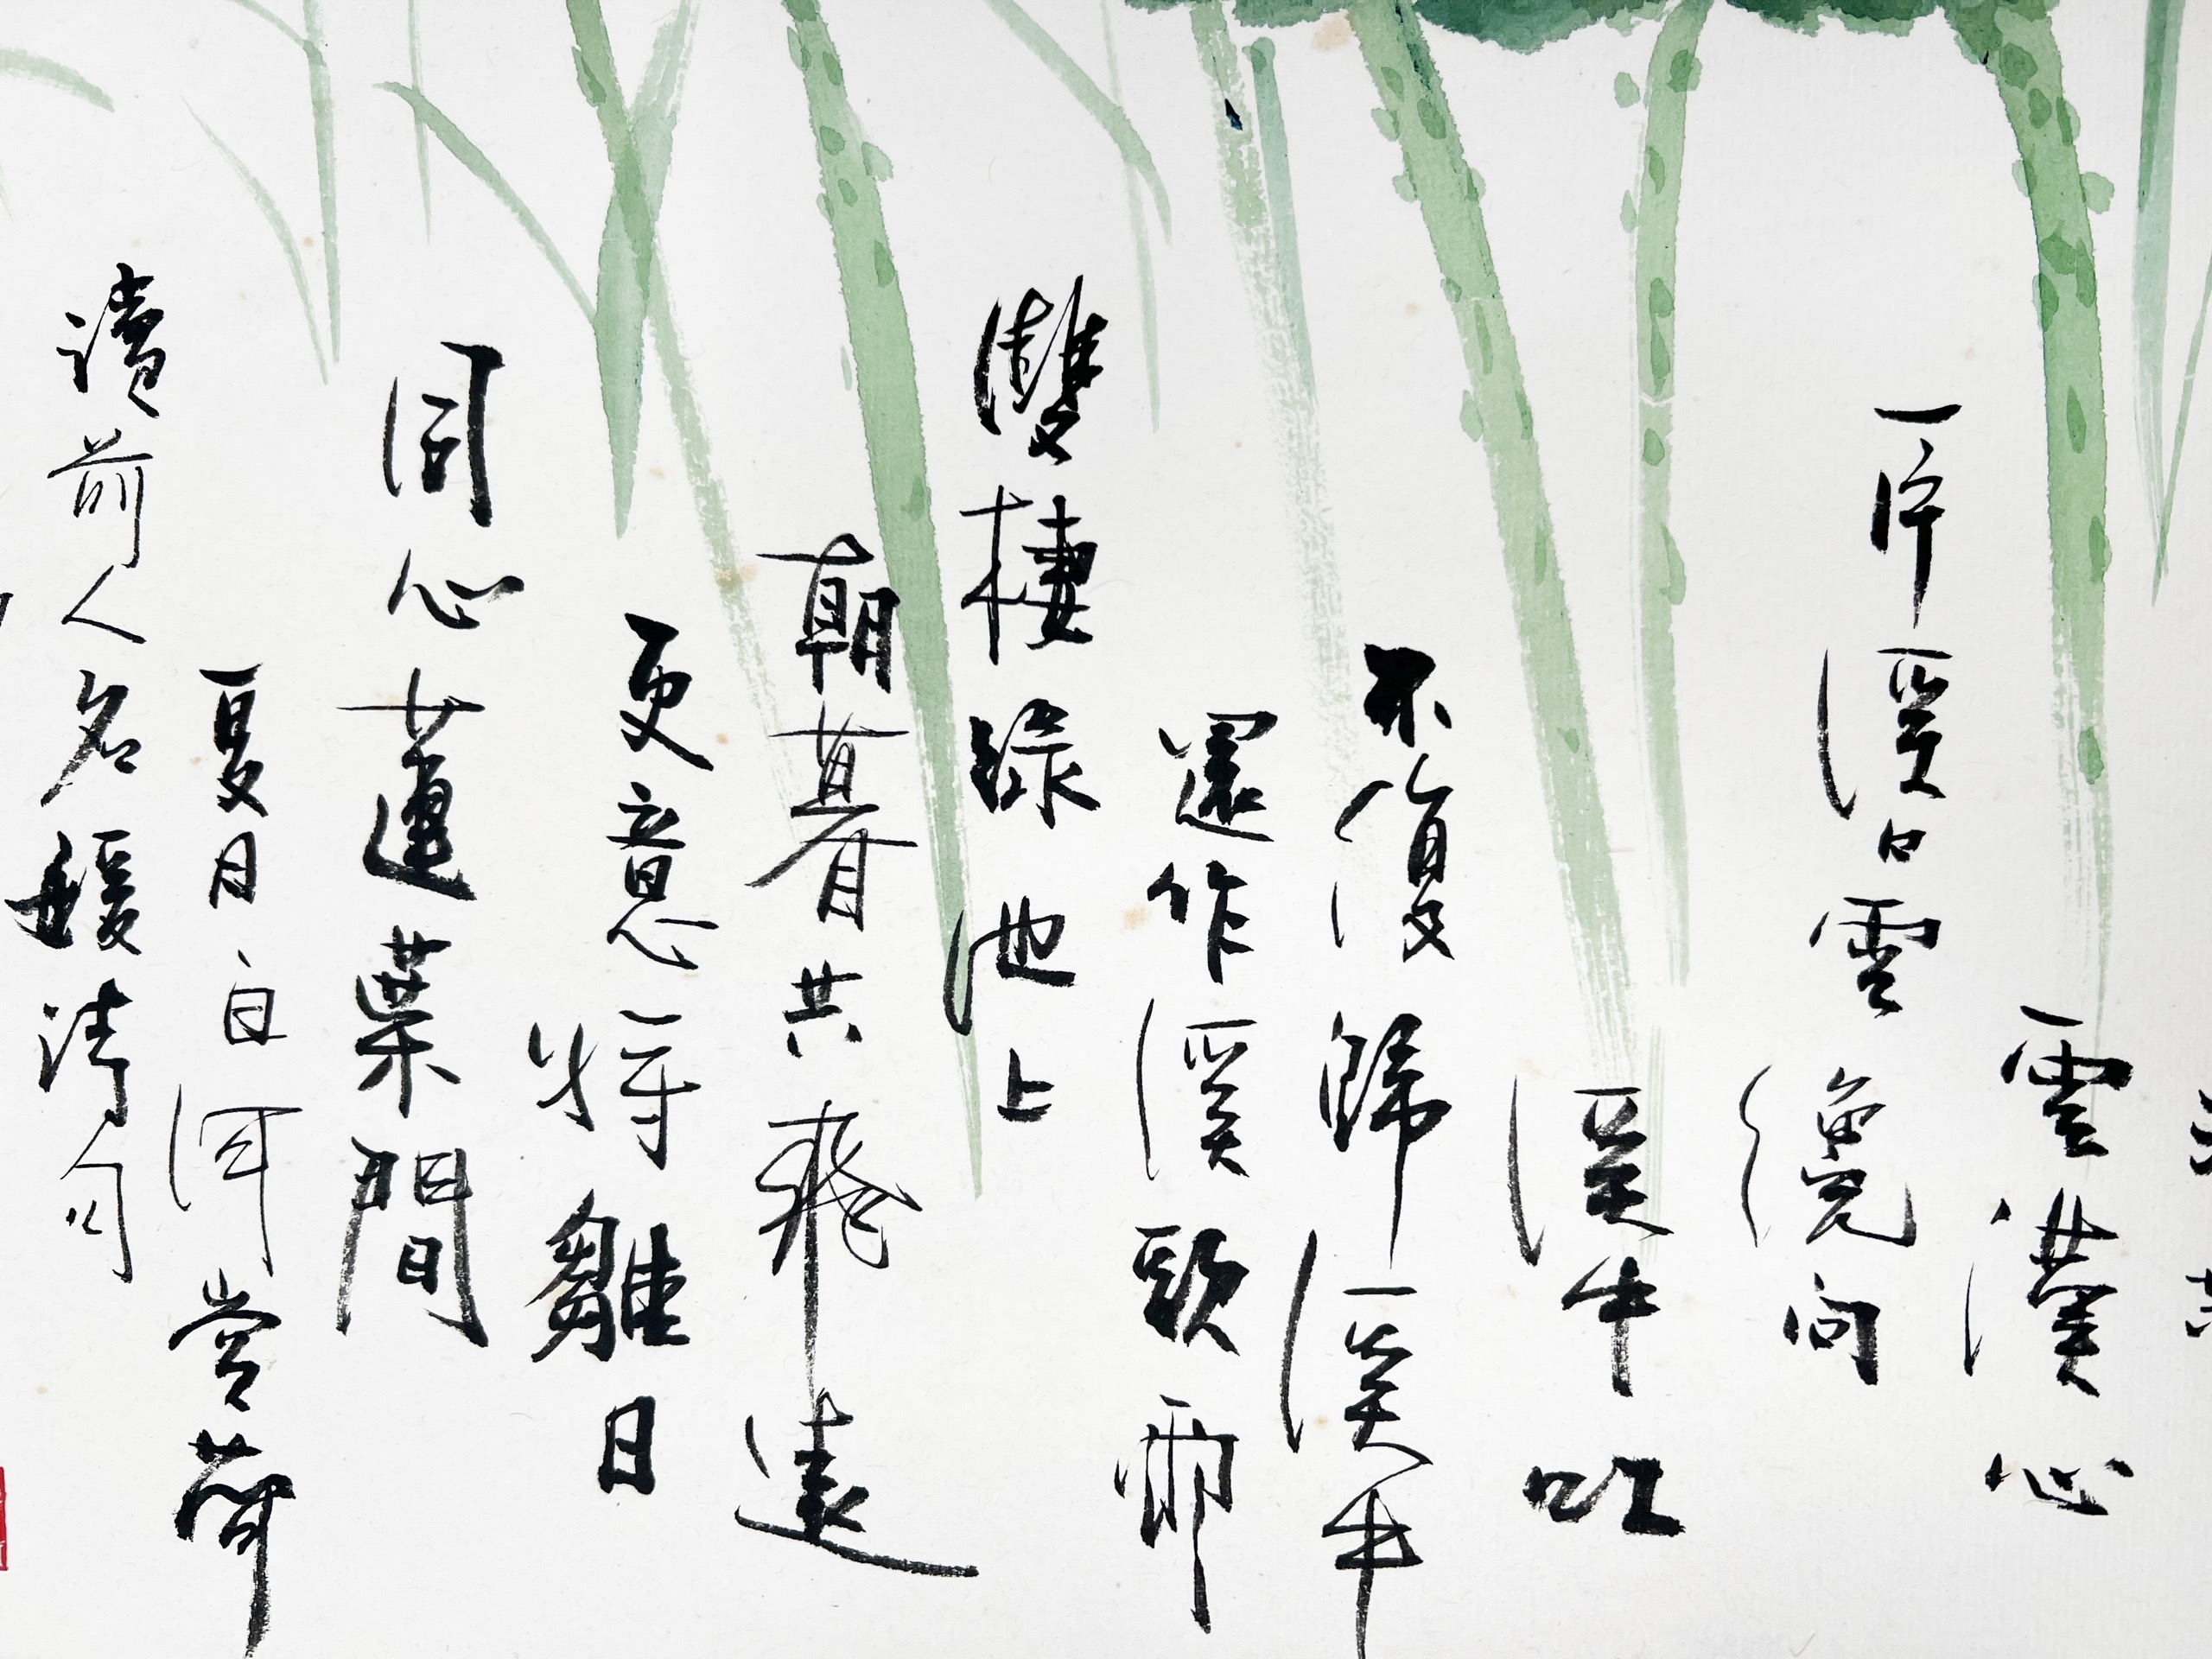 雲漢心
一片溪口雲
纔向
溪中吐
不復歸溪中
還作溪頭雨
雙棲綠池上
朝暮共飛遠
更意將雛日
同心蓮葉間
夏月白河賞荷
讀前人名媛清句